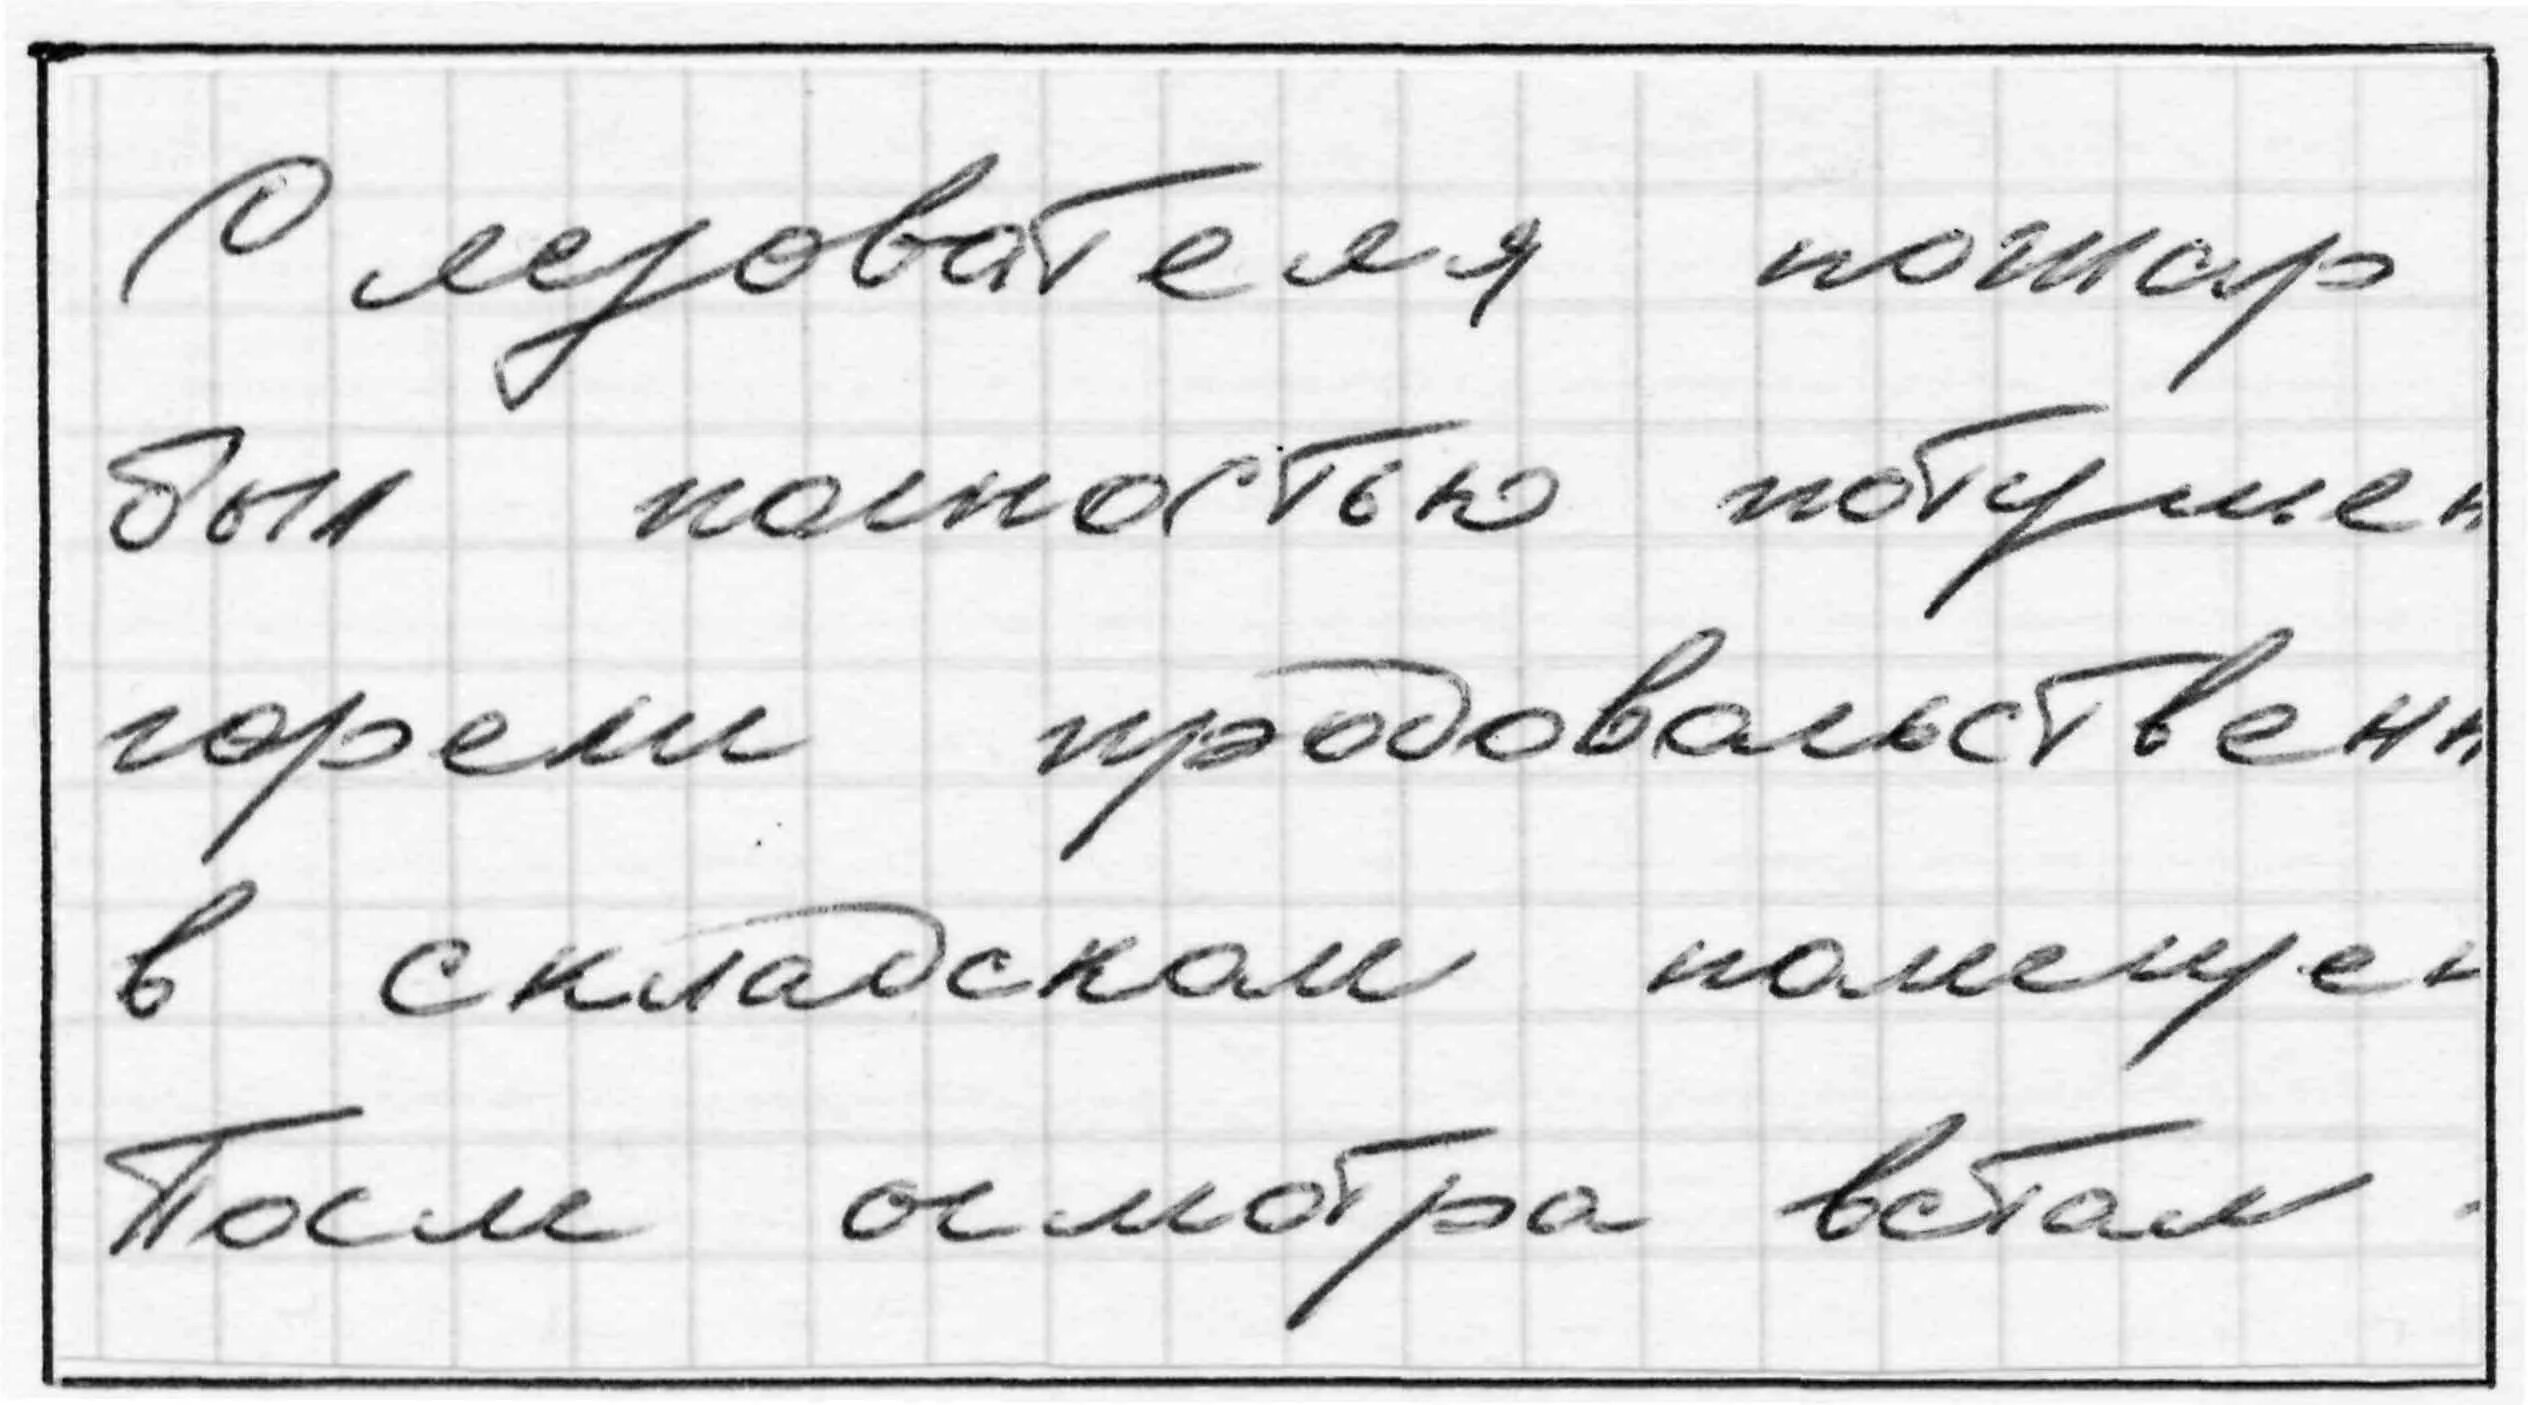 Следователя пожар
был полностью потушен
горели продовольственн
в складском помещен
После осмотра встал